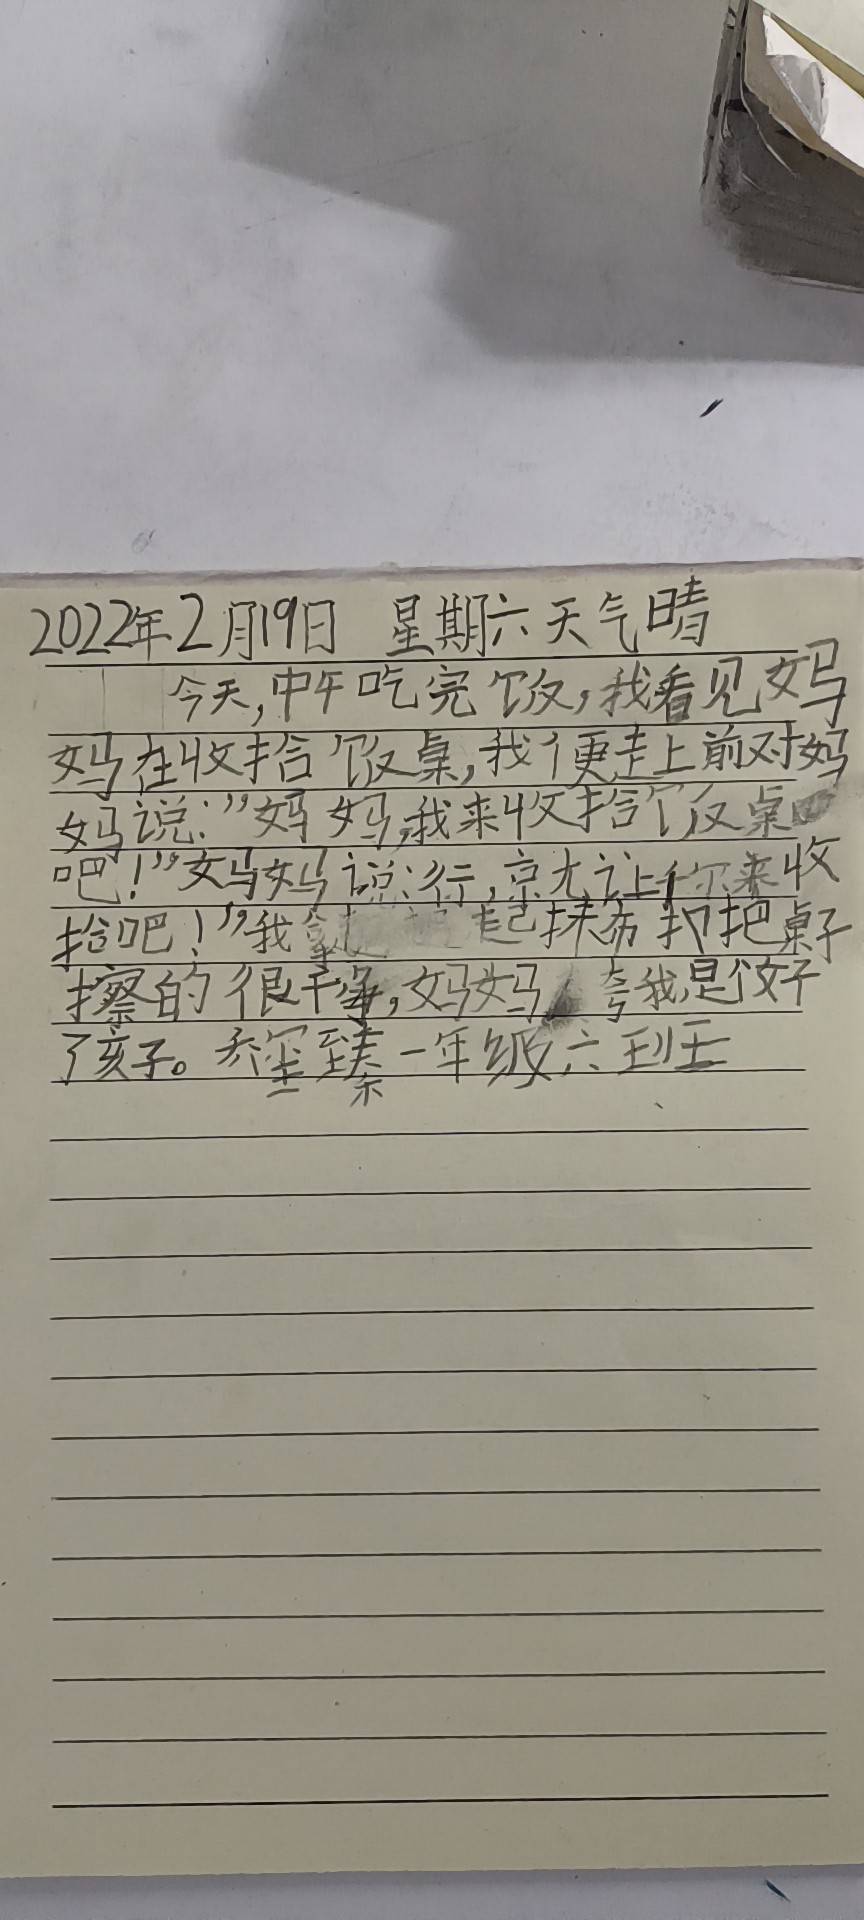 2022年2月19日 星期六天气晴
今天,中午吃完饭,我看见妈
妈在收拾饭桌,我便走上前对妈
妈说:”妈妈,我来收拾饭桌
吧!”妈妈说:行,京尤让你来收
拾吧!”我拿起抹布把桌子
擦的很干净,妈妈夸我是个好
了孩子。乔玺臻一年级六班